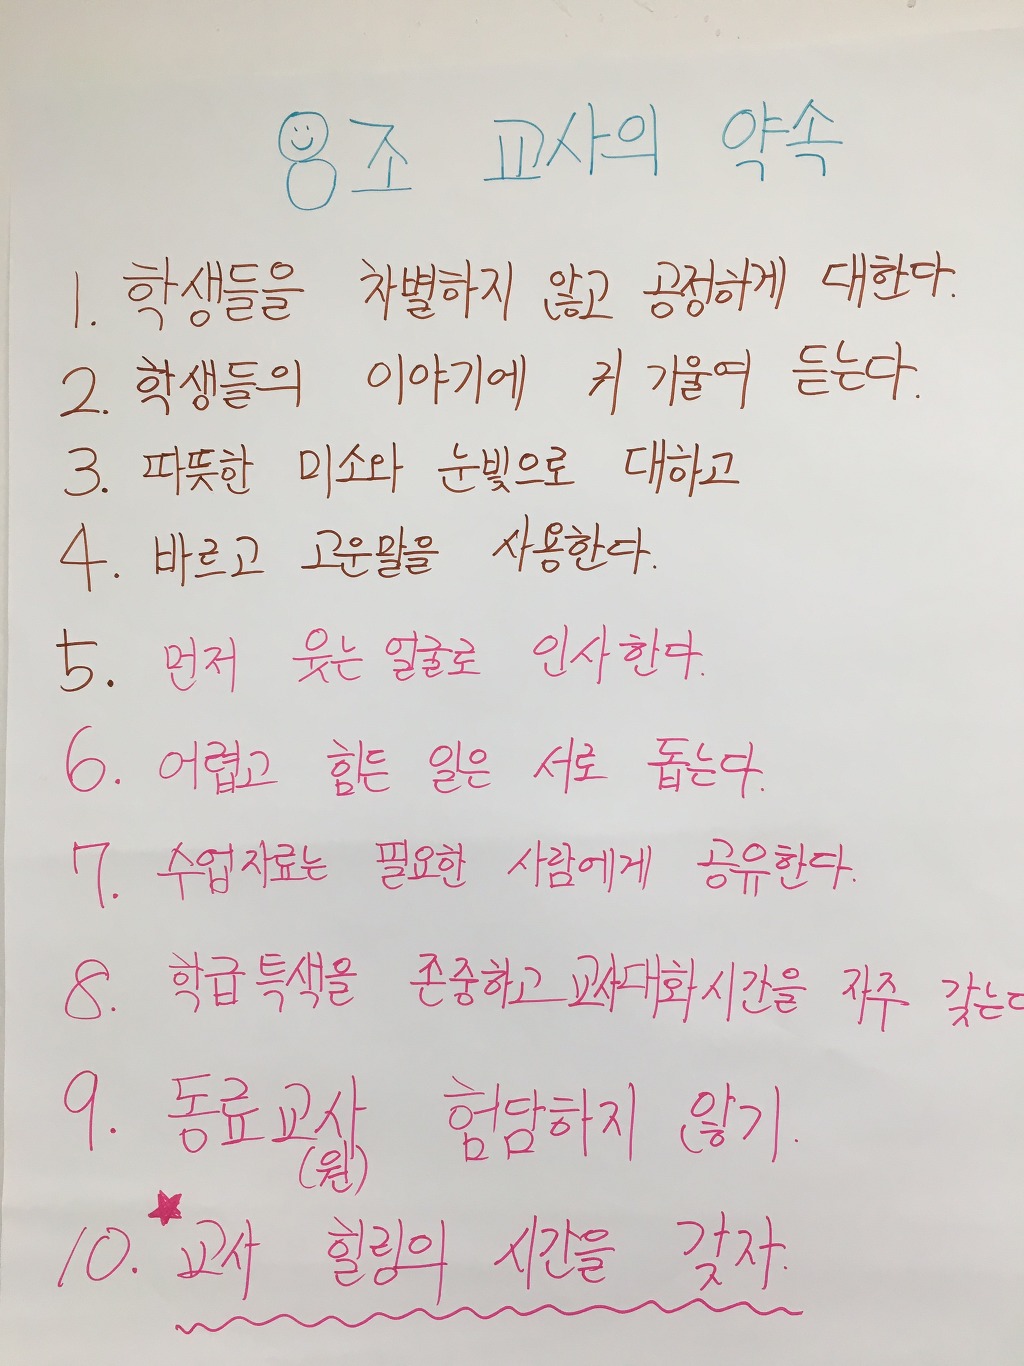 용조 교사의 약속
1. 학생들을 차별하지 않고 공정하게 대한다.
2. 학생들의 이야기에 귀 기울여 듣는다.
3. 따뜻한 미소와 눈빛으로 대하고
4. 바르고 고운말을 사용한다.
5. 먼저 웃는 얼굴로 인사한다.
6. 어렵고 힘든 일은 서로 돕는다.
7. 수업자료는 필요한 사람에게 공유한다.
8. 학급특색을 존중하고 교사대화시간을 자주 갖는다
9. 동료교사 험담하지 않기.
(원)
10. 교사 힐링의 시간을 갖자.